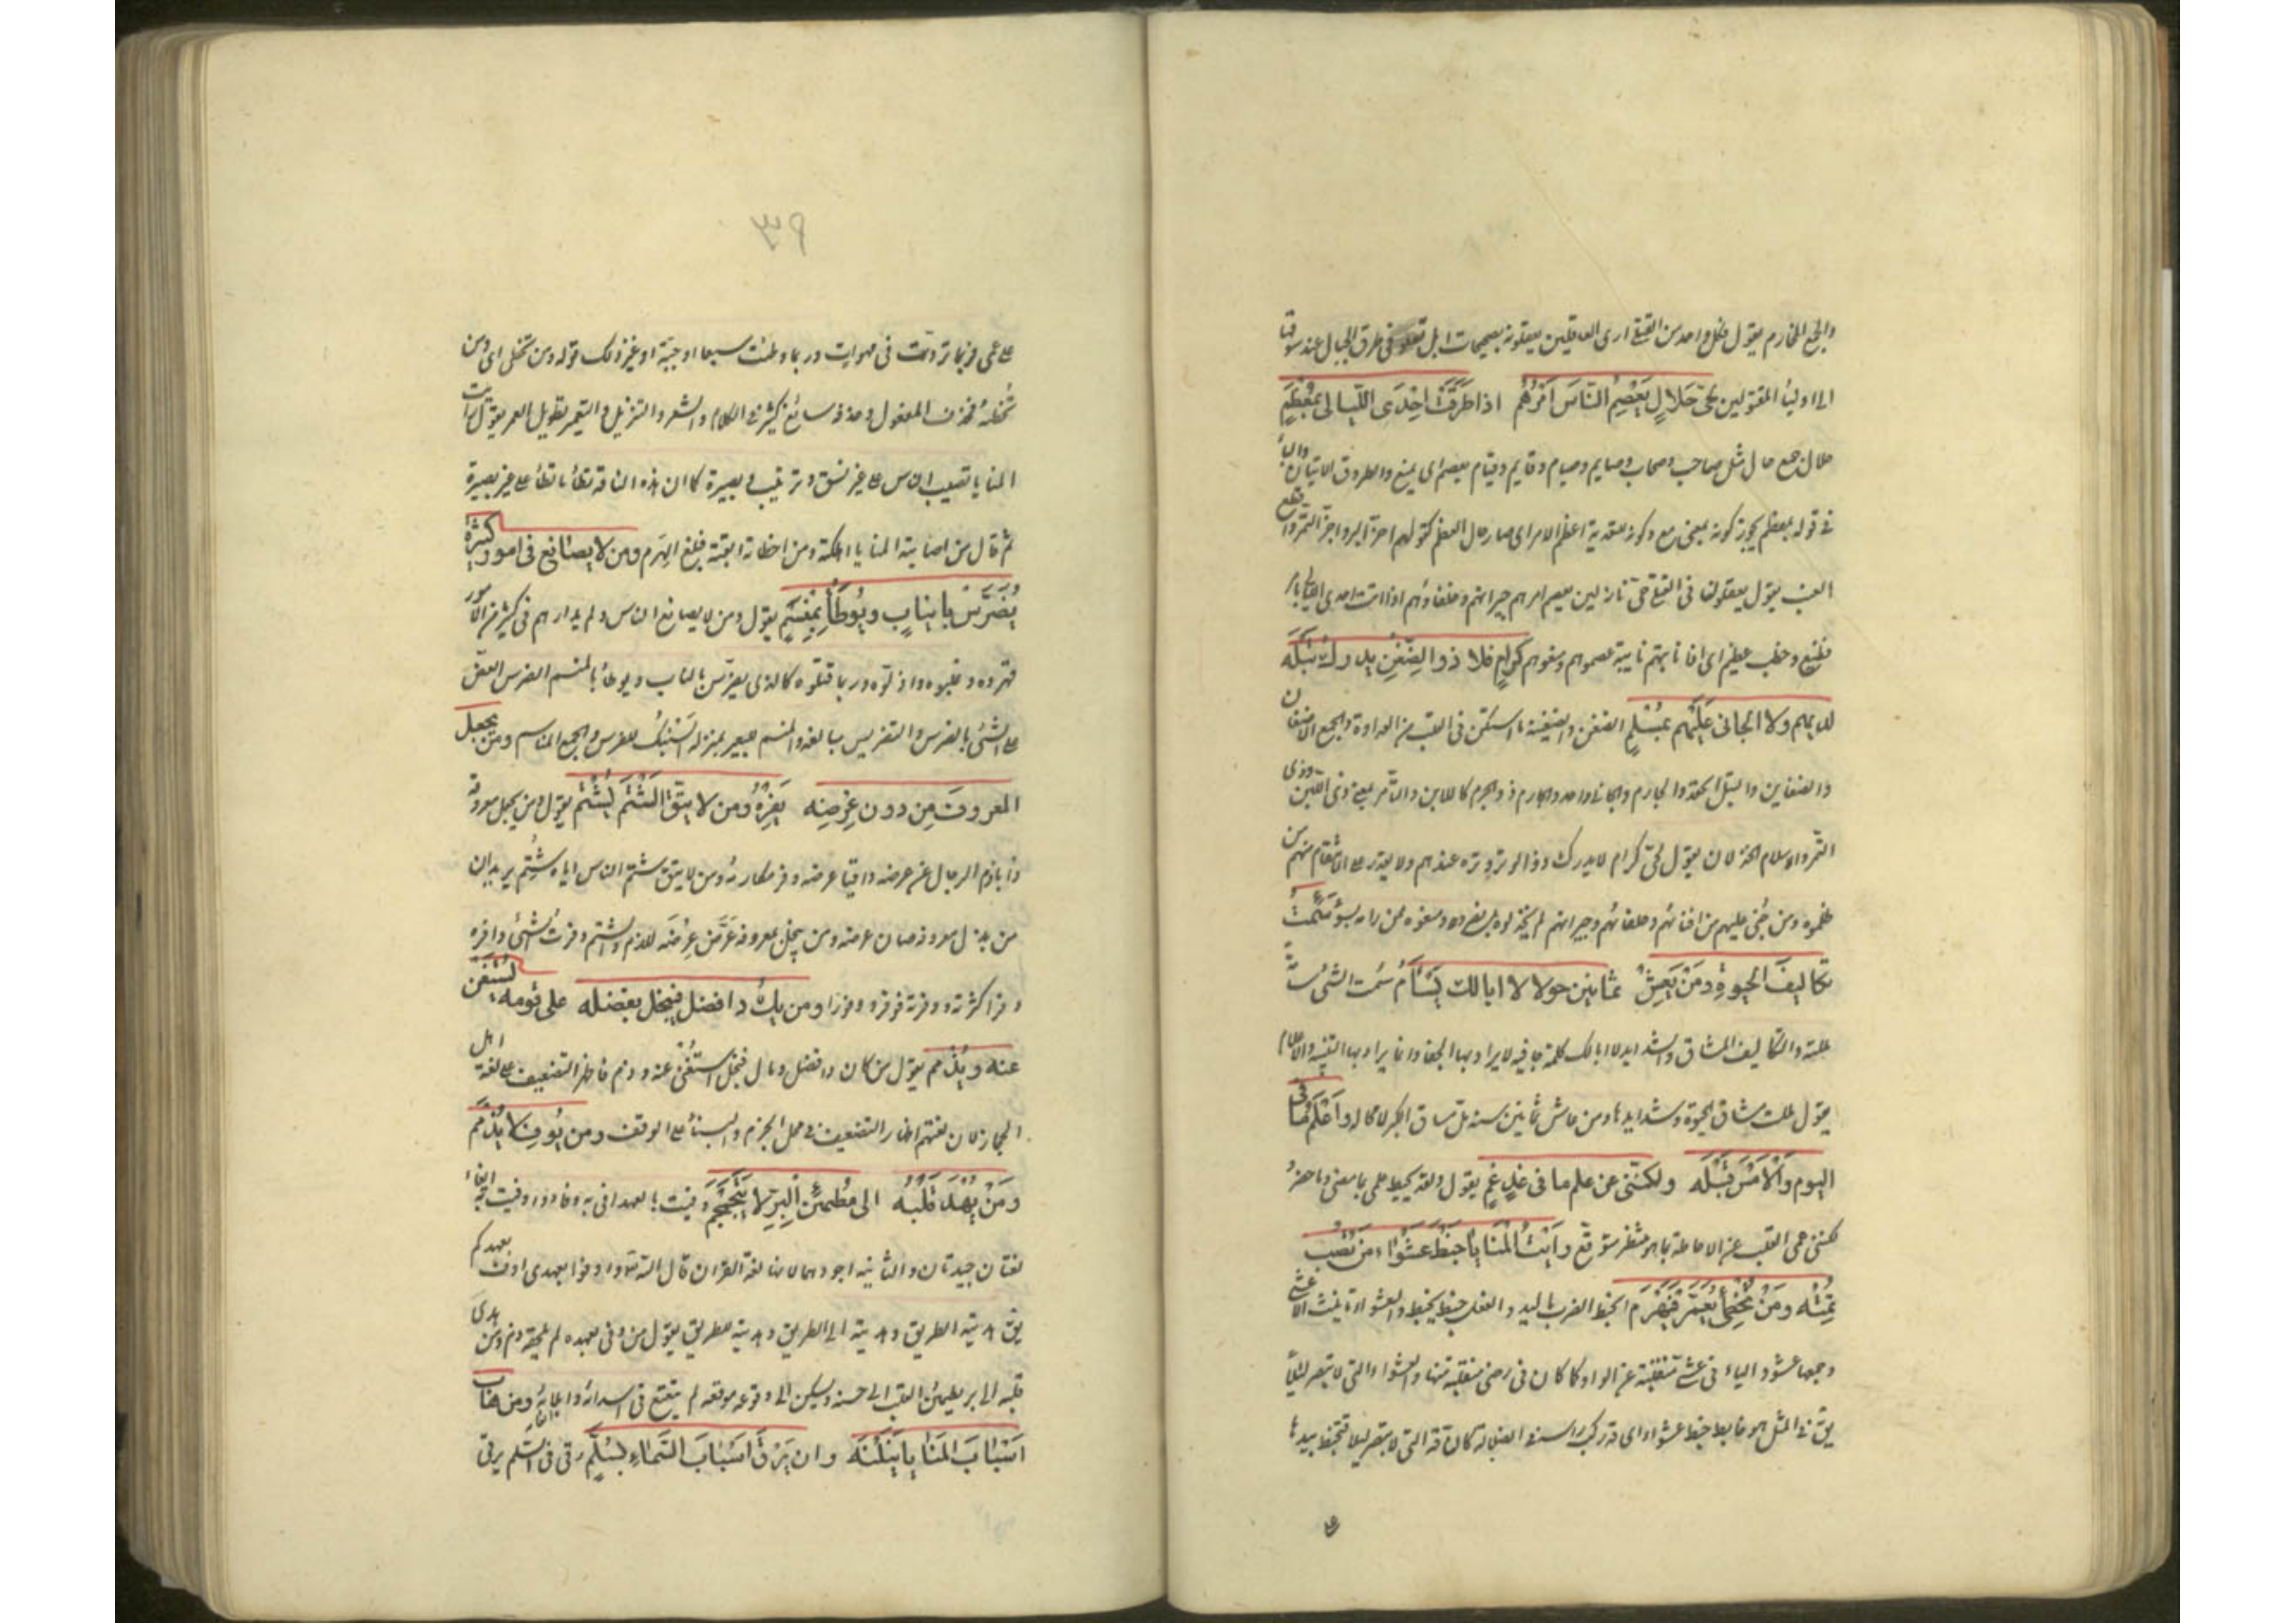 والجمع المخارم يقول فكل واحد من القتلى ارى العاقلين يعقلونه بصحيحات ابل تعلو في طرق الجبال عند سوقها
الى اولياء المقتولين لحي حلال يعصم الناس امرهم اذا طرقت احدى الليالي بمعظم
حلال جمع حال مثل صاحب وصحاب وصايم وصيام وقايم وقيام يعصم اى يمنع والطروق الاتيان ليلا والباء
في قوله بمعظم يجوز كونه بمعنى مع وكونه للتعدية اعظم الامر اى صار حال العظم كقولهم اجز البر واجز التمر واقطع
العنب يقول يعقلون القتلى لحي نازلين يعصم امرهم جيرانهم وحلفاؤهم اذا اتت احدى الليالي بامر
فظيع وخطب عظيم اى اذا نابتهم نايبة عصموهم ومنعوهم كرام فلا ذو الضغن يدرك تبله
لديهم ولا الجاني عليهم بمسلم الضغن والضغينة ما استكن في القلب من العداوة والجمع الاضغان
والضغاين والتبل الحقد والجارم والجاني واحد والجارم ذو الجرم كاللابن والتامر بمعنى ذي اللبن وذي
التمر والاسلام الخذلان يقول لحي كرام لا يدرك ذو الوتر وتره عندهم ولا يقدر على الانتقام منهم من
ظلموه ومن جنى عليهم من افنائهم وحلفائهم وجيرانهم لم يخذلوه بل نصروه ومنعوه ممن رامه بسوء سئمت
تكاليف الحيوة ومن يعش ثمانين حولا لا ابا لك يسأم سئمت الشئ سآمة
مللته والتكاليف المشاق والشدايد لا ابا لك كلمة جافيه لا يراد بها الجفا وانما يراد بها التنبيه والاعلام
يقول مللت مشاق الحيوة وشدايدها ومن عاش ثمانين سنة مل مشاق الكبر لا محالة واعلم ما في
اليوم والامس قبله ولكنني عن علم ما في غد عم يقول ولقد يحيط علمي بما مضى وما حضر
لكنني عمى القلب عن الاحاطة بما هو منتظر متوقع رايت المنايا خبط عشواء من تصب
تمته ومن تخطئ يعمر فيهرم الخبط الضرب باليد والفعل خبط يخبط والعشواء تانيث الاعشى
وجمعها عشو والياء في عشى منقلبة عن الواو كما كان في رضى منقلبة منها والعشواء التي لا تبصر ليلا
يق في المثل هو خابط خبط عشواء اى قد ركب راسه في الضلالة كالناقة التي لا تبصر ليلا فتخبط بيديها
٣٩
على عمى فربما تردت في مهوات وربما وطئت سبعا او حية او غير ذلك قوله ومن تخطئ اى ومن
تخطئه فحذف المفعول وحذفه سائغ كثير في الكلام والشعر والتنزيل والتعمير تطويل العمر يقول رايت
المنايا تصيب الناس على غير نسق وترتيب وبصيرة كما ان هذه الناقة تطأ ما تطأ على غير بصيرة
ثم قال من اصابته المنايا اهلكته ومن اخطاته ابقته فبلغ الهرم ومن لا يصانع في امور كثيرة
يضرس بانياب ويوطأ بمنسم يقول ومن لا يصانع الناس ولم يدارهم في كثير من الامور
قهروه وغلبوه واذلوه وربما قتلوه كالذي يضرس بالناب ويوطأ بالمنسم الضرس العض
على الشئ بالضرس والتضريس مبالغة والمنسم للبعير بمنزلة السنبك للفرس والجمع المناسم ومن يجعل
المعروف من دون عرضه يفره ومن لا يتق الشتم يشتم يقول ومن يجعل معروفه
ذابا ذم الرجال عن عرضه واقيا عرضه وفر مكارمه ومن لا يتق شتم الناس اياه شتم يريد ان
من بذل معروفه صان عرضه ومن بخل بمعروفه عرض عرضه للذم والشتم وفرت الشئ وافره
وفرا كثرته ووفرته فوفر وفورا ومن يك ذا فضل فيبخل بفضله على قومه يستغن
عنه ويذمم يقول من كان ذا فضل ومال فبخل استغنى عنه وذم فاظهر التضعيف على لغة اهل
الحجاز لان لغتهم اظهار التضعيف في محل الجزم والبناء على الوقف ومن يوف لا يذمم
ومن يهد قلبه الى مطمئن البر لا يتجمجم وفيت بالعهد افي به وفاء واوفيت به ايفاء
لغتان جيدتان والثانية اجودهما لانها لغة القران قال الله تعالى واوفوا بعهدى اوف بعهدكم
يق هديته الطريق وهديته الى الطريق وهديته للطريق يقول من وفى بعهده لم يلحقه ذم ومن هدى
قلبه الى بر يطمئن القلب الى حسنه ويسكن الى وقوعه موقعه لم يتتعتع في اسدائه وايلائه ومن هاب
اسباب المنايا ينلنه وان يرق اسباب السماء بسلم رقى في السلم يرقى